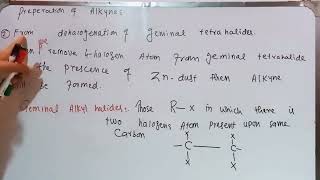 Preparation of Alkynes
② From dehalogenation of geminal tetrahalides.
remove 4-halogen Atom from geminal tetrahalide
the prescence of Zn-dust then Alkyne
be formed.
Geminal Alkyl halides:- Those R-x in which there is
two halogens Atom present upon same
Carbon
x x
-C — C-
x x